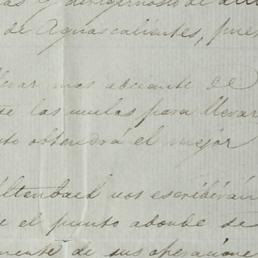 de Aguascalientes, pues
llevar mas adelante se
las mulas para llevar
obtendrá el mejor
Altenbach nos escribirán
el punto adonde se
de sus operacione